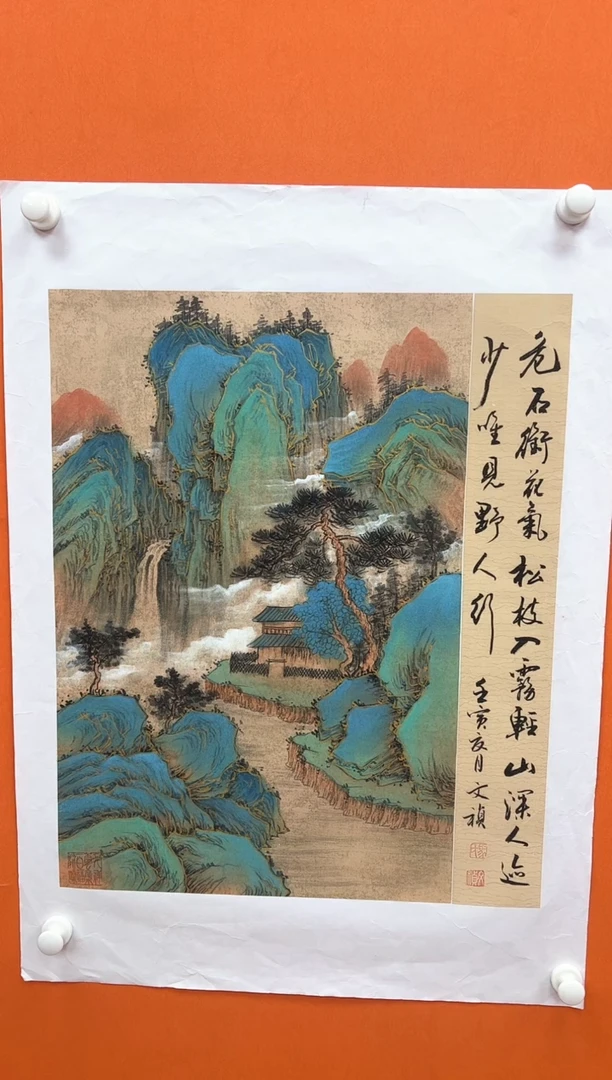 危石衔花氣松枝入霧輕山深人迹
少唯見野人行
壬寅夏月文禎